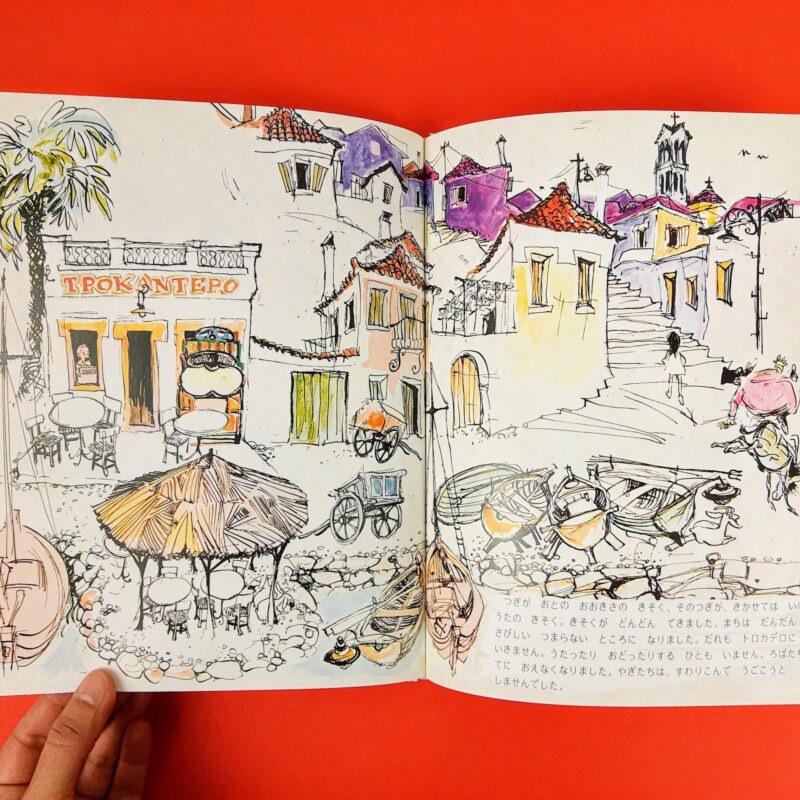 ΤΡΟΚΑΝΤΕΡΟ
つぎが おとの おおきさの きそく、そのつぎが、きかせては い
うたの きそく。きそくが どんどん できました。まちは だんだん
さびしい つまらない ところに なりました。だれも トロカデロに
いきません。うたったり おどったりする ひとも いません。ろばた
てに おえなくなりました。やぎたちは、すわりこんで うごこうと
しませんでした。